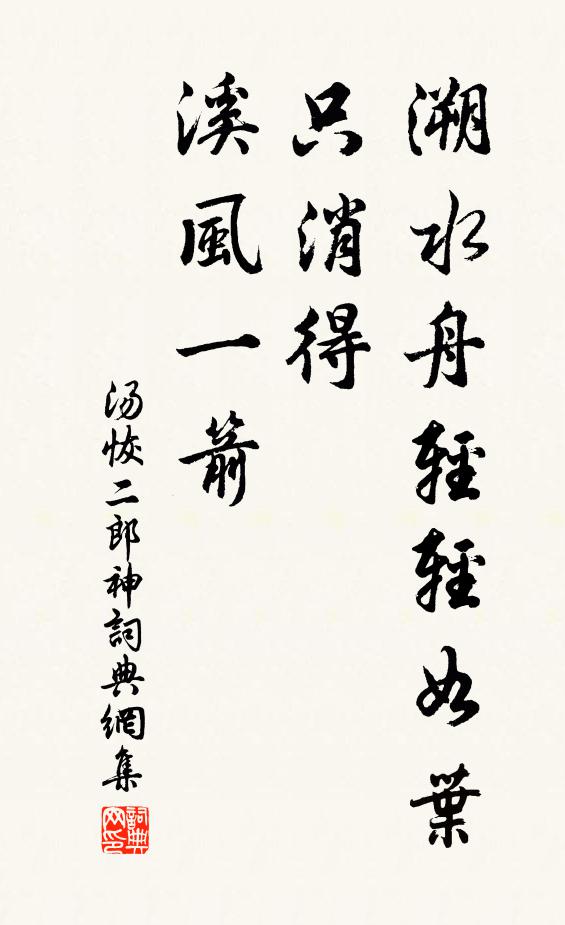 溯水舟輕輕如葉
只消得
溪風一箭
汤恢二郎神詞典網集
詞典网印